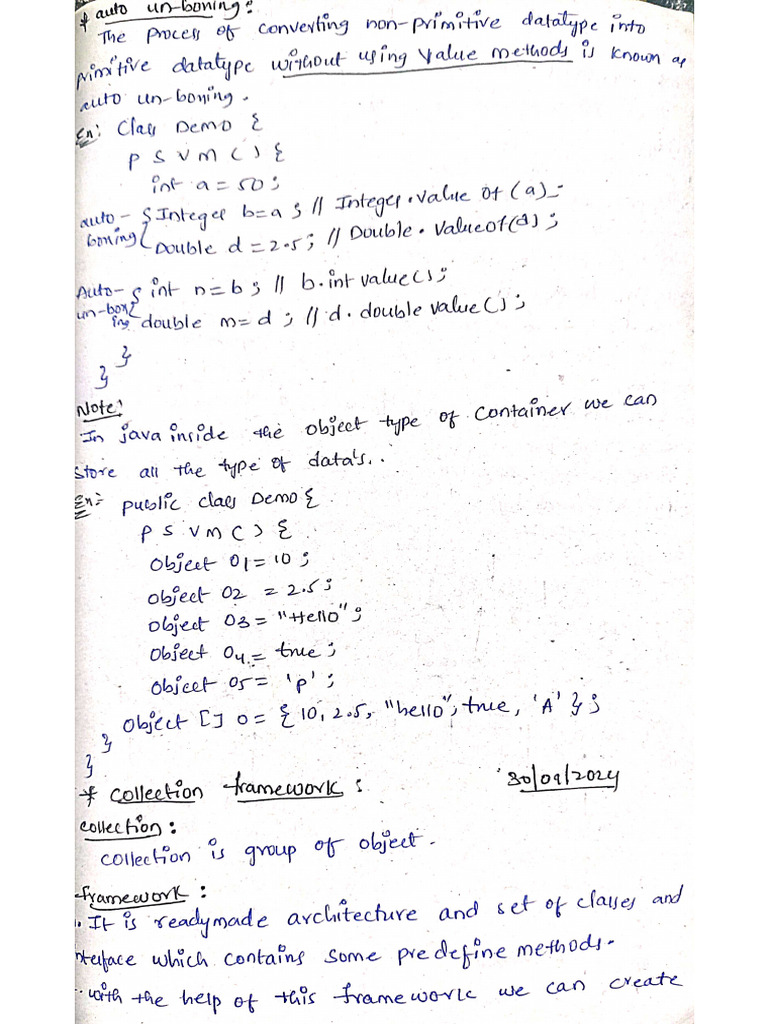 * auto un-boning:
The process of converting non-primitive datatype into
primitive datatype without using value methods is known as
auto un-boning.
En: Class Demo {
P S V M ( ) {
int a = 50;
auto-boning { Integer b=a; // Integer.value of (a);
Double d = 2.5; // Double.valueof(d);
Auto-un-boxing { int n=b; // b.int value();
double m=d; // d.double value();
}
}
Note:
In java inside the object type of container we can
store all the type of data's..
En:- public class Demo {
P S V M ( ) {
Object O1=10;
Object O2 = 2.5;
Object O3 = "Hello";
Object O4 = true;
Object O5 = 'p';
Object [] o = {10, 2.5, "hello", true, 'A'};
}
}
* collection framework: 30/09/2024
collection:
collection is group of object.
framework:
It is readymade architecture and set of classes and
nterface which contains some predefine methods.
with the help of this framework we can create